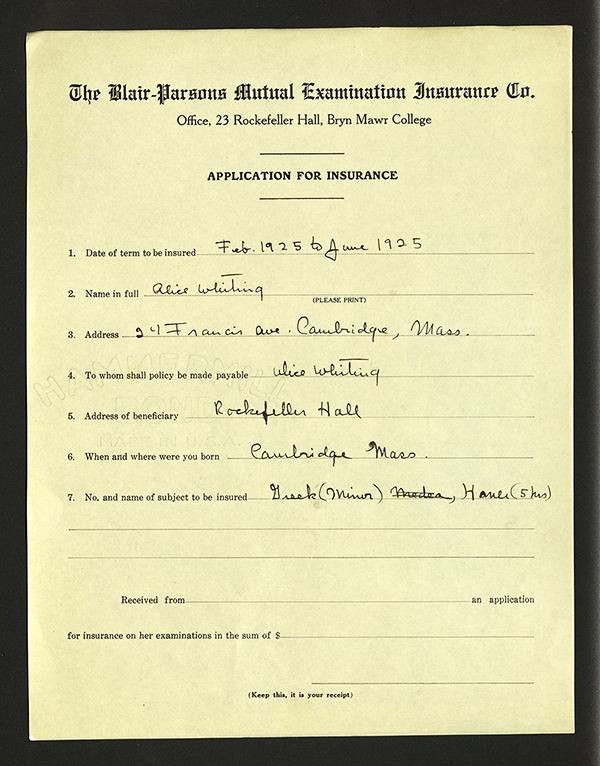 The Blair-Parsons Mutual Examination Insurance Co.
Office, 23 Rockefeller Hall, Bryn Mawr College
APPLICATION FOR INSURANCE
1. Date of term to be insured Feb. 1925 to June 1925
2. Name in full Alice Whiting
(PLEASE PRINT)
3. Address 24 Francis Ave. Cambridge, Mass.
4. To whom shall policy be made payable Alice Whiting
5. Address of beneficiary Rockefeller Hall
6. When and where were you born Cambridge Mass.
7. No. and name of subject to be insured Greek (Minor) Medea, (5 hrs)
Received from an application
for insurance on her examinations in the sum of $
(Keep this, it is your receipt)